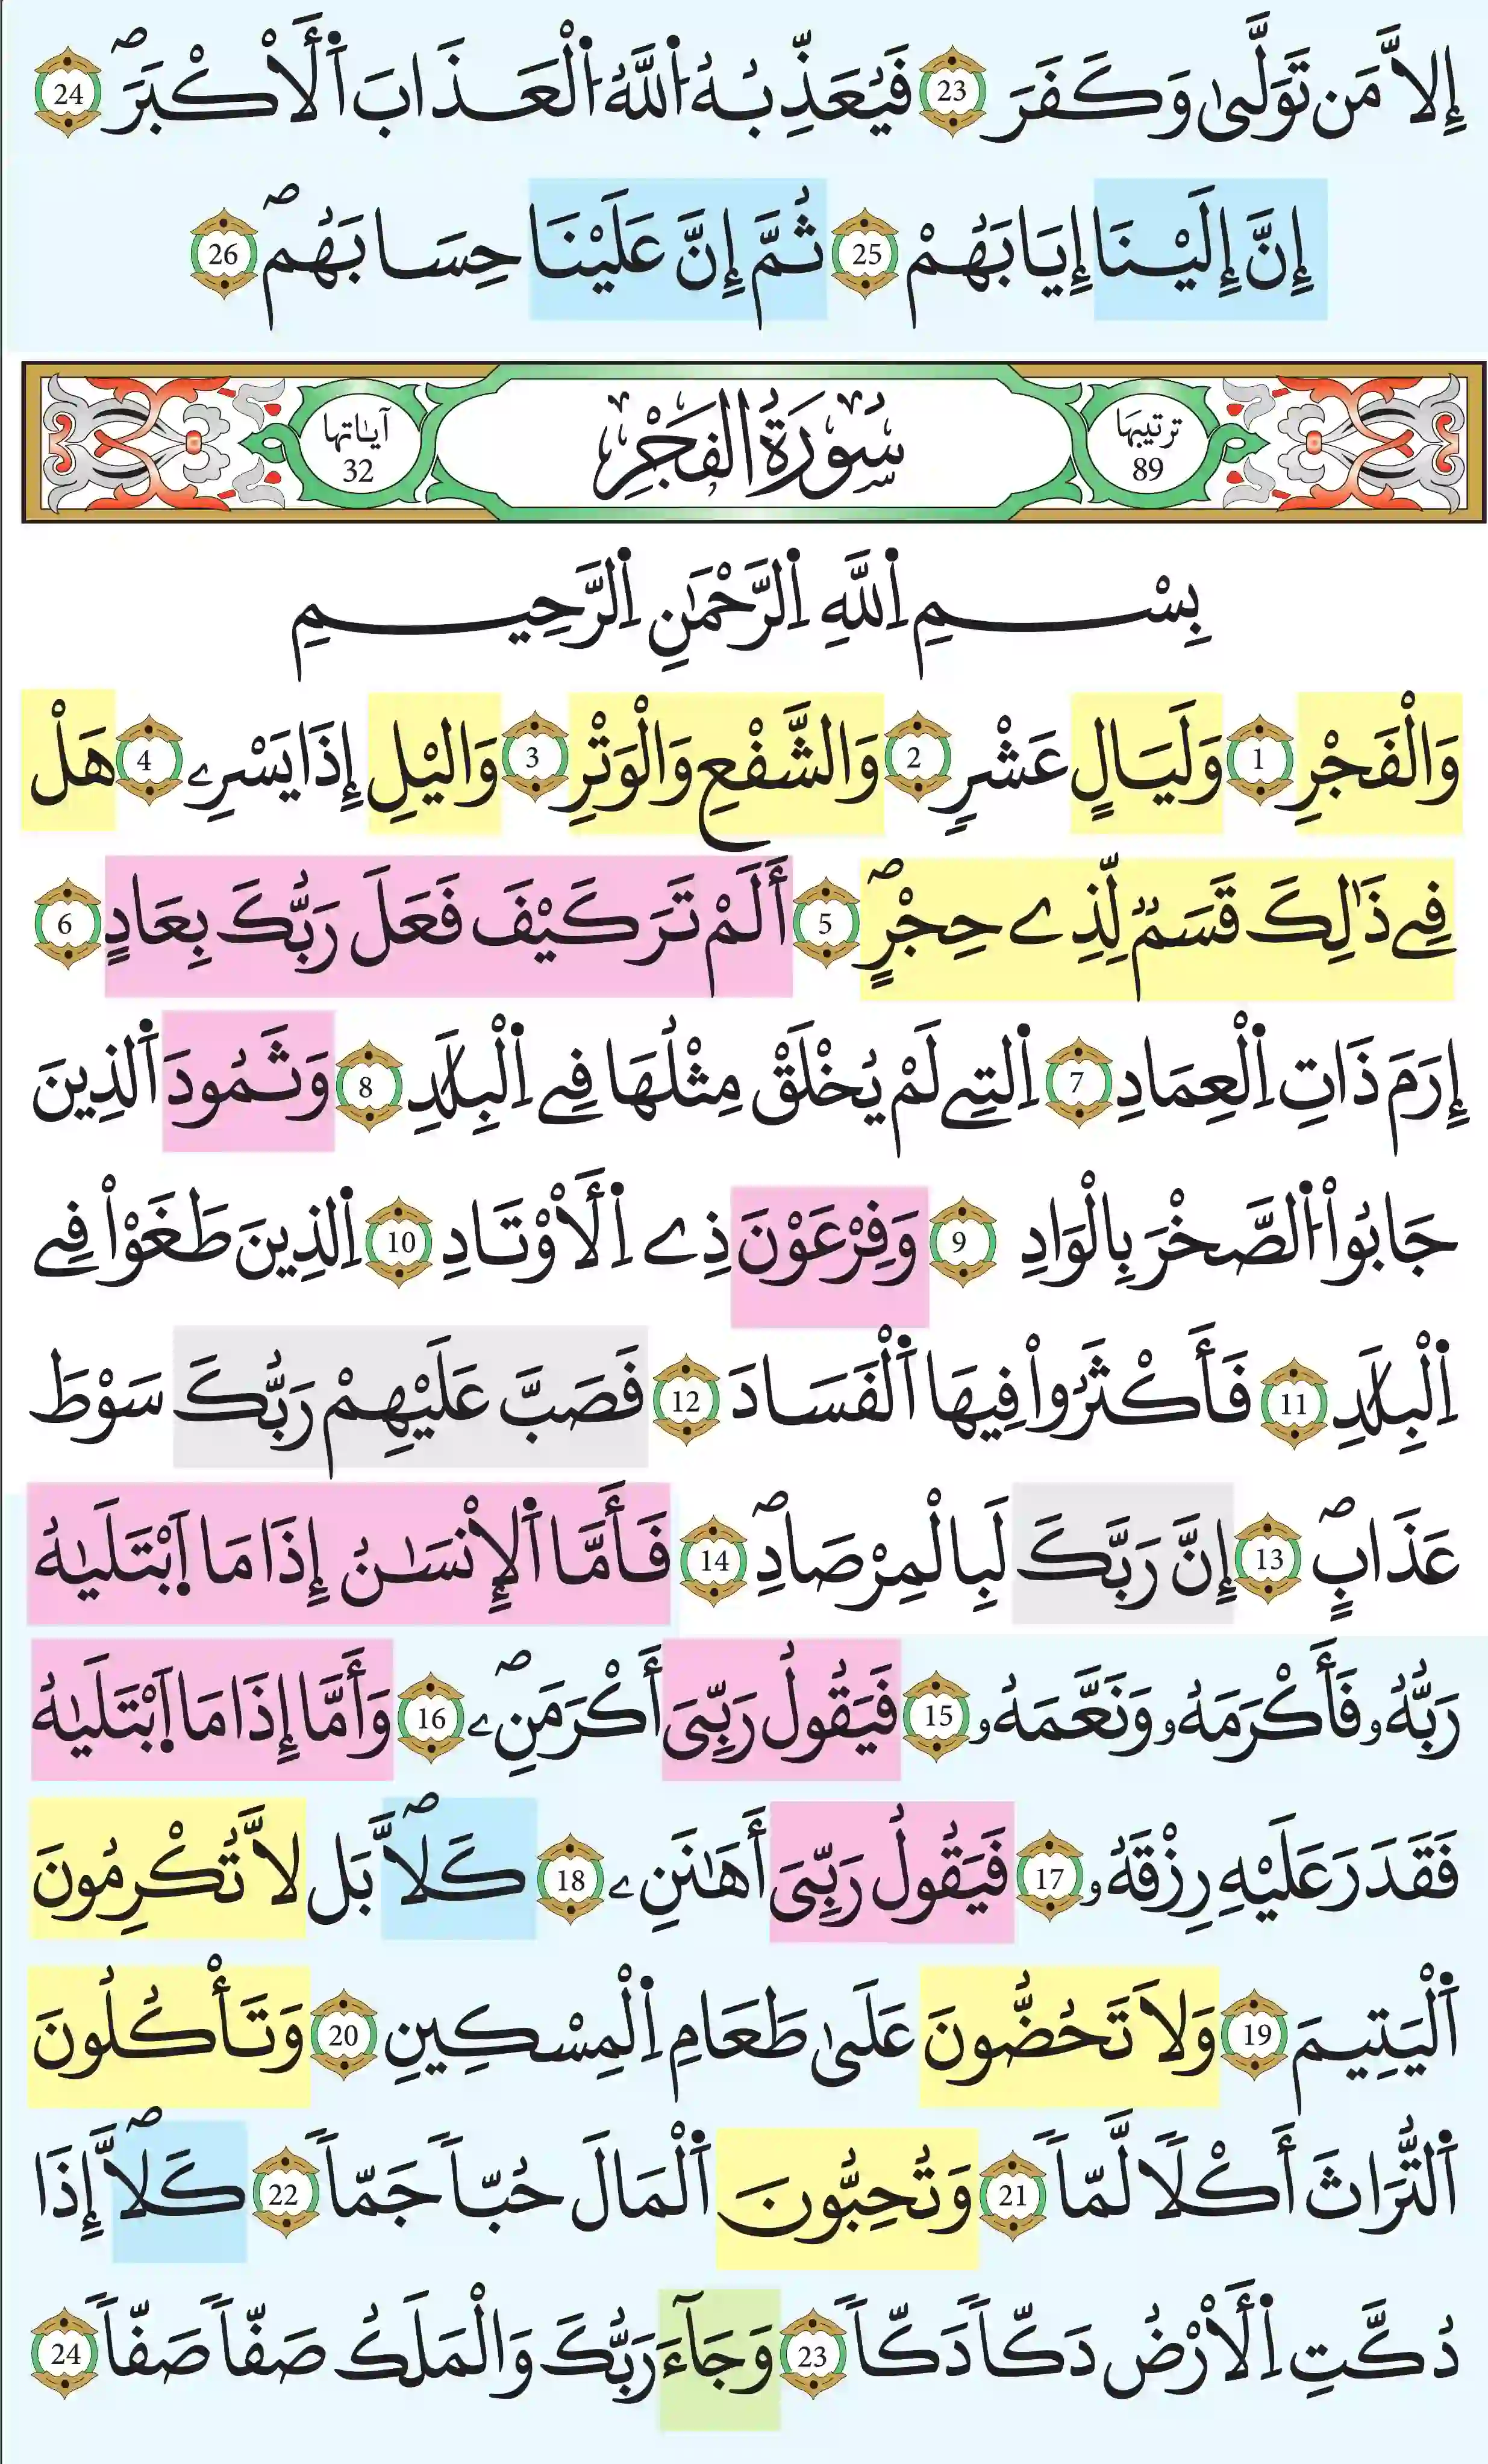 إِلَّا مَن تَوَلَّىٰ وَكَفَرَ 23 فَيُعَذِّبُهُ اُ۬للَّهُ اُ۬لْعَذَابَ اَ۬لَأَكْبَرَۖ 24
إِنَّ إِلَيْنَا إِيَابَهُمْ 25 ثُمَّ إِنَّ عَلَيْنَا حِسَابَهُمۖ 26
ترتيبها 89 سُورَةُ الفَجْرِ آياتها 32
بِسْمِ اِ۬للَّهِ اِ۬لرَّحْمَٰنِ اِ۬لرَّحِيمِ
وَالْفَجْرِ 1 وَلَيَالٍ عَشْرٍ 2 وَالشَّفْعِ وَالْوَتْرِ 3 وَاليْلِ إِذَا يَسْرِۦ 4 هَلْ
فِے ذَٰلِكَ قَسَمٌ لِّذِے حِجْرٍۖ 5 أَلَمْ تَرَ كَيْفَ فَعَلَ رَبُّكَ بِعَادٍ 6
إِرَمَ ذَاتِ اِ۬لْعِمَادِ 7 اِ۬لتِے لَمْ يُخْلَقْ مِثْلُهَا فِے اِ۬لْبِلَٰدِ 8 وَثَمُودَ اَ۬لذِينَ
جَابُواْ اُ۬لصَّخْرَ بِالْوَادِ 9 وَفِرْعَوْنَ ذِے اِ۬لَأَوْتَادِ 10 اِ۬لذِينَ طَغَوْاْ فِے
اِ۬لْبِلَٰدِ 11 فَأَكْثَرُواْ فِيهَا اَ۬لْفَسَادَ 12 فَصَبَّ عَلَيْهِمْ رَبُّكَ سَوْطَ
عَذَابٍۖ 13 إِنَّ رَبَّكَ لَبِالْمِرْصَادِۖ 14 فَأَمَّا اَ۬لْإِنسَٰنُ إِذَا مَا اَ۪بْتَلَيٰهُ
رَبُّهُۥ فَأَكْرَمَهُۥ وَنَعَّمَهُۥ 15 فَيَقُولُ رَبِّيَ أَكْرَمَنِۦۖ 16 وَأَمَّا إِذَا مَا اَ۪بْتَلَيٰهُ
فَقَدَرَ عَلَيْهِ رِزْقَهُۥ 17 فَيَقُولُ رَبِّيَ أَهَٰنَنِۦ 18 كَلَّاۖ بَل لَّا تُكْرِمُونَ
اَ۬لْيَتِيمَ 19 وَلَا تَحُضُّونَ عَلَىٰ طَعَامِ اِ۬لْمِسْكِينِ 20 وَتَأْكُلُونَ
اَ۬لتُّرَاثَ أَكْلًا لَّمّاً 21 وَتُحِبُّونَ اَ۬لْمَالَ حُبّاً جَمّاً 22 كَلَّاۖ إِذَا
دُكَّتِ اِ۬لَأَرْضُ دَكّاً دَكّاً 23 وَجَآءَ رَبُّكَ وَالْمَلَكُ صَفّاً صَفّاً 24